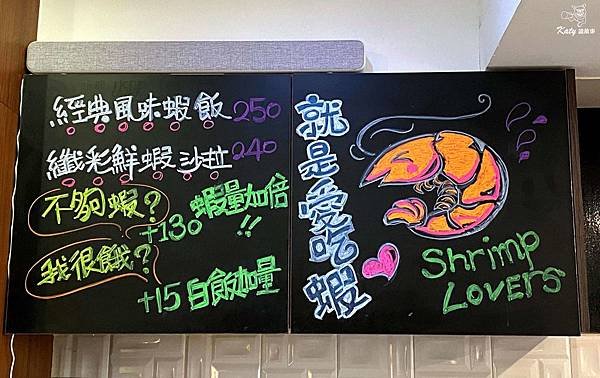 經典風味蝦飯 250
纖彩鮮蝦沙拉 240
不夠蝦? +130 蝦量加倍!!
我很餓? +15 白飯加量
就是愛吃蝦
Shrimp
LOVERS
Katy